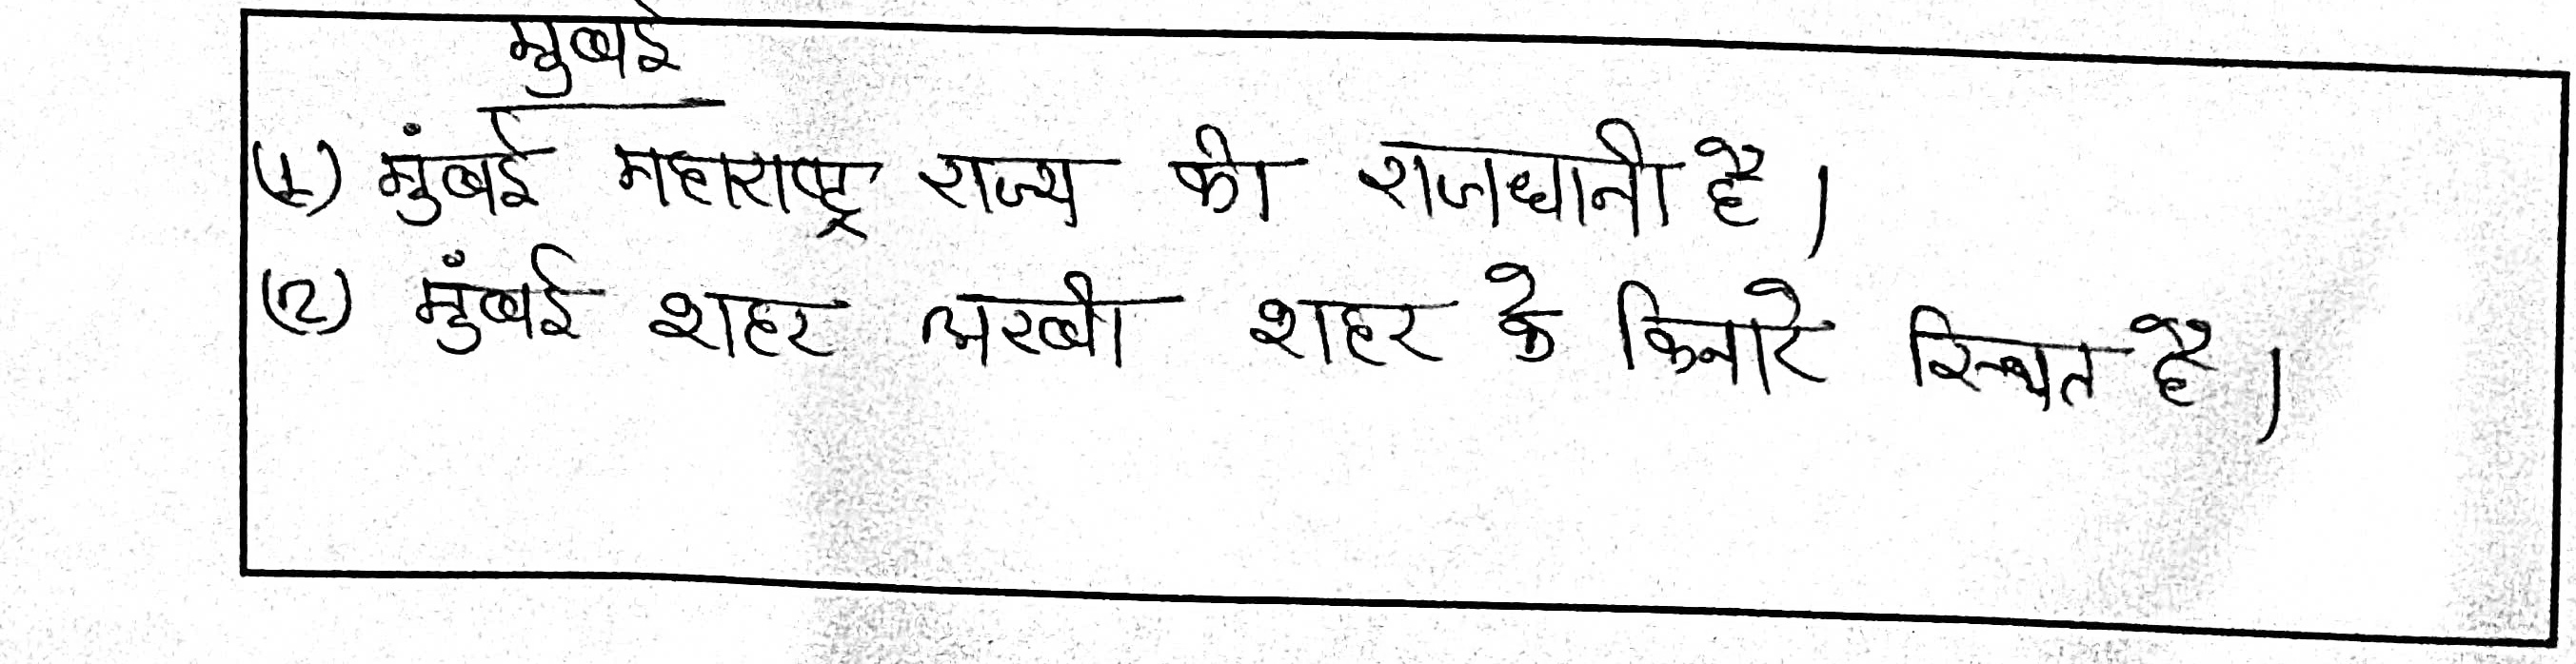 मुंबई
(1) मुंबई महाराष्ट्र राज्य की राजधानी है।
(2) मुंबई शहर अरबी शहर के किनारे स्थित है।